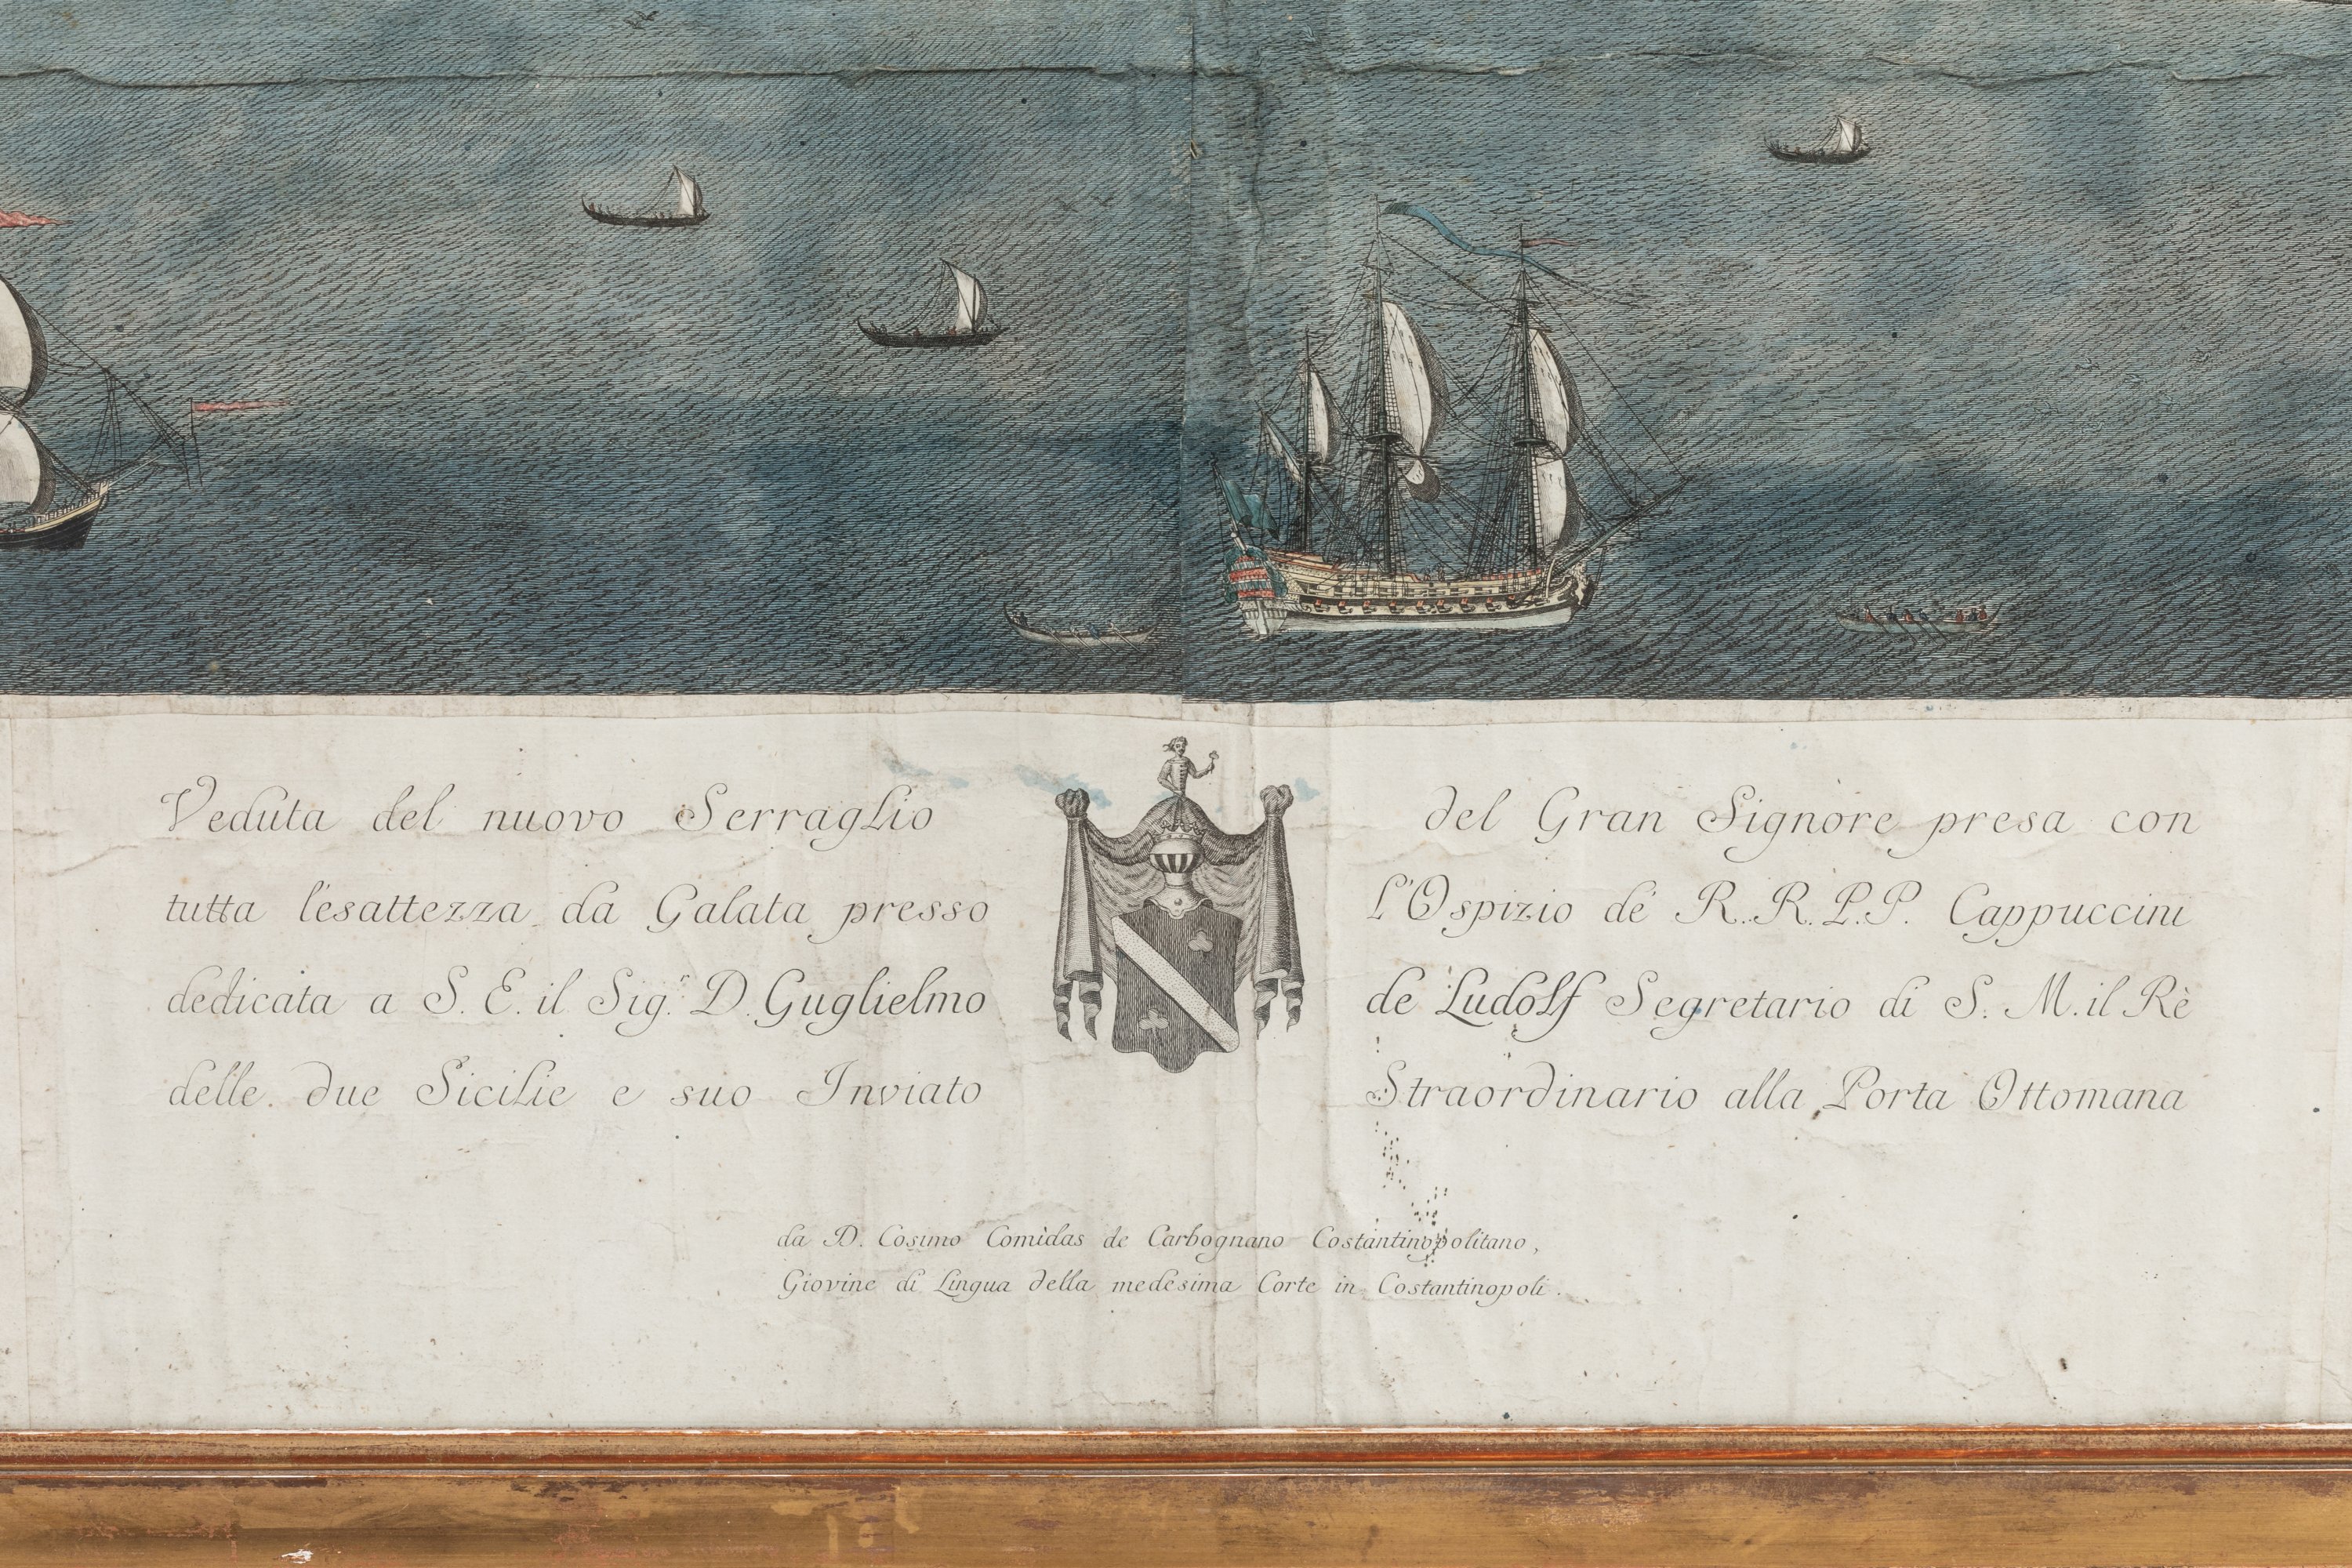 Veduta del nuovo Serraglio del Gran Signore presa con
tutta l'esattezza da Galata presso l'Ospizio de' R.R.P.P. Cappuccini
dedicata a S. E. il Sig.r D. Guglielmo de Ludolf Segretario di S. M. il Rè
delle due Sicilie e suo Inviato Straordinario alla Porta Ottomana
da D. Cosimo Comìdas de Carbognano Costantinopolitano,
Giovine di Lingua della medesima Corte in Costantinopoli.